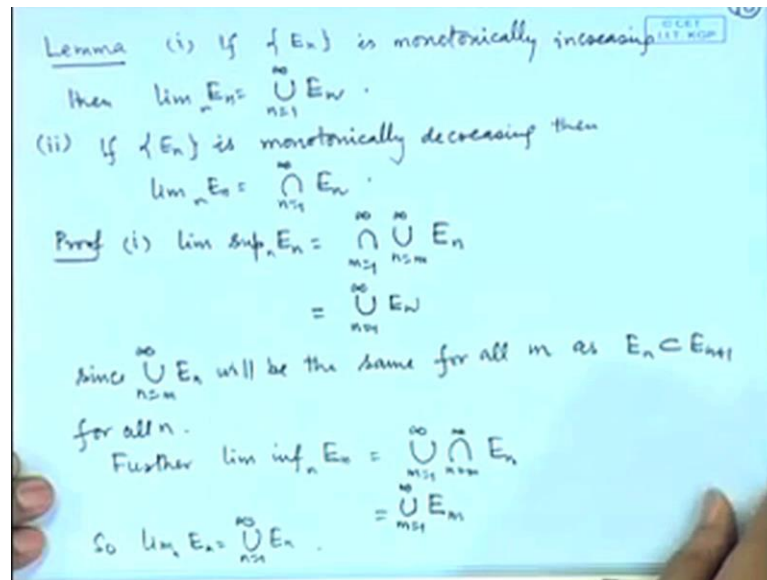 Lemma (i) If {En} is monotonically increasing
© CET
I.I.T. KGP
then lim_n En = ∞∪n=1 En .
(ii) If {En} is monotonically decreasing then
lim_n En = ∞∩n=1 En .
Proof (i) lim sup_n En = ∞∩m=1 ∞∪n=m En
= ∞∪n=1 En
since ∞∪n=m En will be the same for all m as En ⊂ En+1
for all n.
Further lim inf_n En = ∞∪m=1 ∞∩n=m En
= ∞∪m=1 Em
So lim_n En = ∞∪n=1 En .